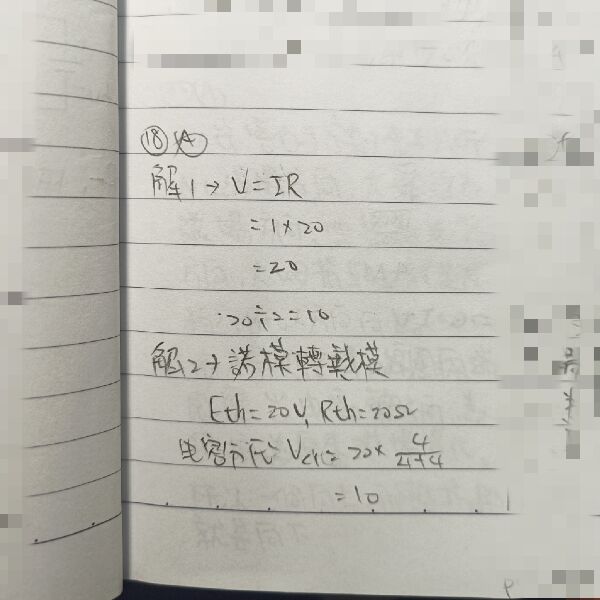 ⑱ Ⓐ
解1→ V=IR
=1×20
=20
20÷2=10
解2→諾模轉戴模
Eth=20V, Rth=20Ω
电容分压 Vc1=20×4/(4+4)
=10